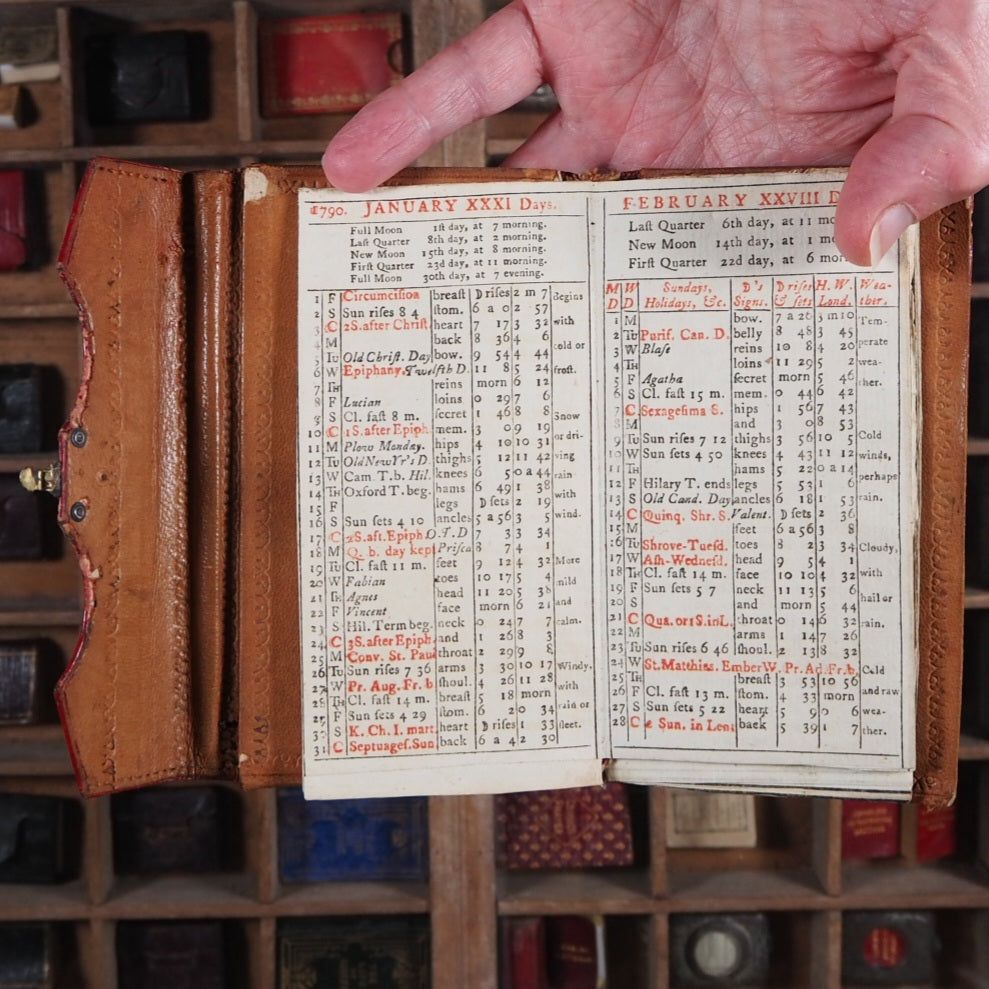 1790. JANUARY XXXI Days.
Full Moon 1ſt day, at 7 morning.
Laſt Quarter 8th day, at 2 morning.
New Moon 15th day, at 8 morning.
Firſt Quarter 23d day, at 11 morning.
Full Moon 30th day, at 7 evening.
1 F Circumciſion breaſt D riſes 2 m 7 Begins
2 S Sun riſes 8 4 ſtom. 6 a 0 2 57
3 C 2S.after Chriſt. heart 7 17 3 32 with
4 M back 8 36 4 6
5 Tu Old Chriſt. Day bow. 9 54 4 44 cold or
6 W Epiphany. Twelfth D. 11 8 5 24 froſt.
7 Th reins morn 6 12
8 F Lucian loins 0 29 7 6
9 S Cl. faſt 8 m. ſecret 1 46 8 8 Snow
10 C 1S.after Epiph. mem. 3 0 9 19
11 M Plow Monday. hips 4 10 10 31 or dri-
12 Tu Old New Yr's D. thighs 5 12 11 42 ving
13 W Cam. T. b. Hil. knees 6 5 0 a 44 rain
14 Th Oxford T. beg. hams 6 49 1 38
15 F legs D ſets 2 19 with
16 S Sun ſets 4 10 ancles 5 a 56 3 5 wind.
17 C 2S.aft.Epiph O.T.D 7 33 34
18 M Q. b. day kept Priſca 8 7 4 1
19 Tu Cl. faſt 11 m. feet 9 12 4 32 More
20 W Fabian toes 10 17 5 4 mild
21 Th Agnes head 11 20 5 38
22 F Vincent face morn 6 21 and
23 S Hil. Term beg. neck 0 24 7 7 calm.
24 C 3S.after Epiph. and 1 26 8 3
25 M Conv. St. Paul throat 2 29 9 8
26 Tu Sun riſes 7 36 arms 3 30 10 17 Windy,
27 W Pr. Aug. Fr. b ſhoul. 4 26 11 28 with
28 Th Cl. faſt 14 m. breaſt 5 18 morn
29 F Sun ſets 4 29 ſtom. 6 2 0 34 rain or
30 S K. Ch. I. mart. heart D riſes 1 33 ſleet.
31 C Septuageſ. Sun back 6 a 4 2 30
FEBRUARY XXVIII D
Laſt Quarter 6th day, at 11 mo
New Moon 14th day, at 1 mo
Firſt Quarter 22d day, at 6 mor
M W Sundays, D's D riſes H. W. Wea-
D D Holidays, &c. Signs. & ſets Lond. ther.
1 M bow. 7 a 26 3 m 10 Tem-
2 Tu Purif. Can. D. belly 8 48 3 45
3 W Blaſe reins 10 8 4 20 perate
4 Th loins 11 29 5 2 wea-
5 F Agatha ſecret morn 5 46 ther.
6 S Cl. faſt 15 m. mem. 0 44 6 42
7 C Sexageſima S. hips 1 56 7 43
8 M and 3 0 8 53
9 Tu Sun riſes 7 12 thighs 3 56 10 5 Cold
10 W Sun ſets 4 50 knees 4 43 11 12 winds,
11 Th hams 5 22 0 a 14 perhaps
12 F Hilary T. ends legs 5 53 1 6
13 S Old Cand. Day ancles 6 18 1 53 rain.
14 C Quinq. Shr. S. Valent. D ſets 2 36
15 M feet 6 a 56 3 8
16 Tu Shrove-Tueſd. toes 8 2 3 34 Cloudy,
17 W Aſh-Wedneſd. head 9 5 4 1
18 Th Cl. faſt 14 m. face 10 10 4 32 with
19 F Sun ſets 5 7 neck 11 13 5 6 hail or
20 S and morn 5 44
21 C Qua. or 1S.in L. throat 0 14 6 32 rain.
22 M arms 1 14 7 26
23 Tu Sun riſes 6 46 ſhoul. 2 13 8 32
24 W St. Matthias. Ember W. Pr. Ad. Fr. b. Cold
25 Th breaſt 3 53 10 56
26 F Cl. faſt 13 m. ſtom. 4 33 morn and raw
27 S Sun ſets 5 22 heart 5 9 0 6 wea-
28 C 2 Sun. in Lent back 5 39 1 7 ther.